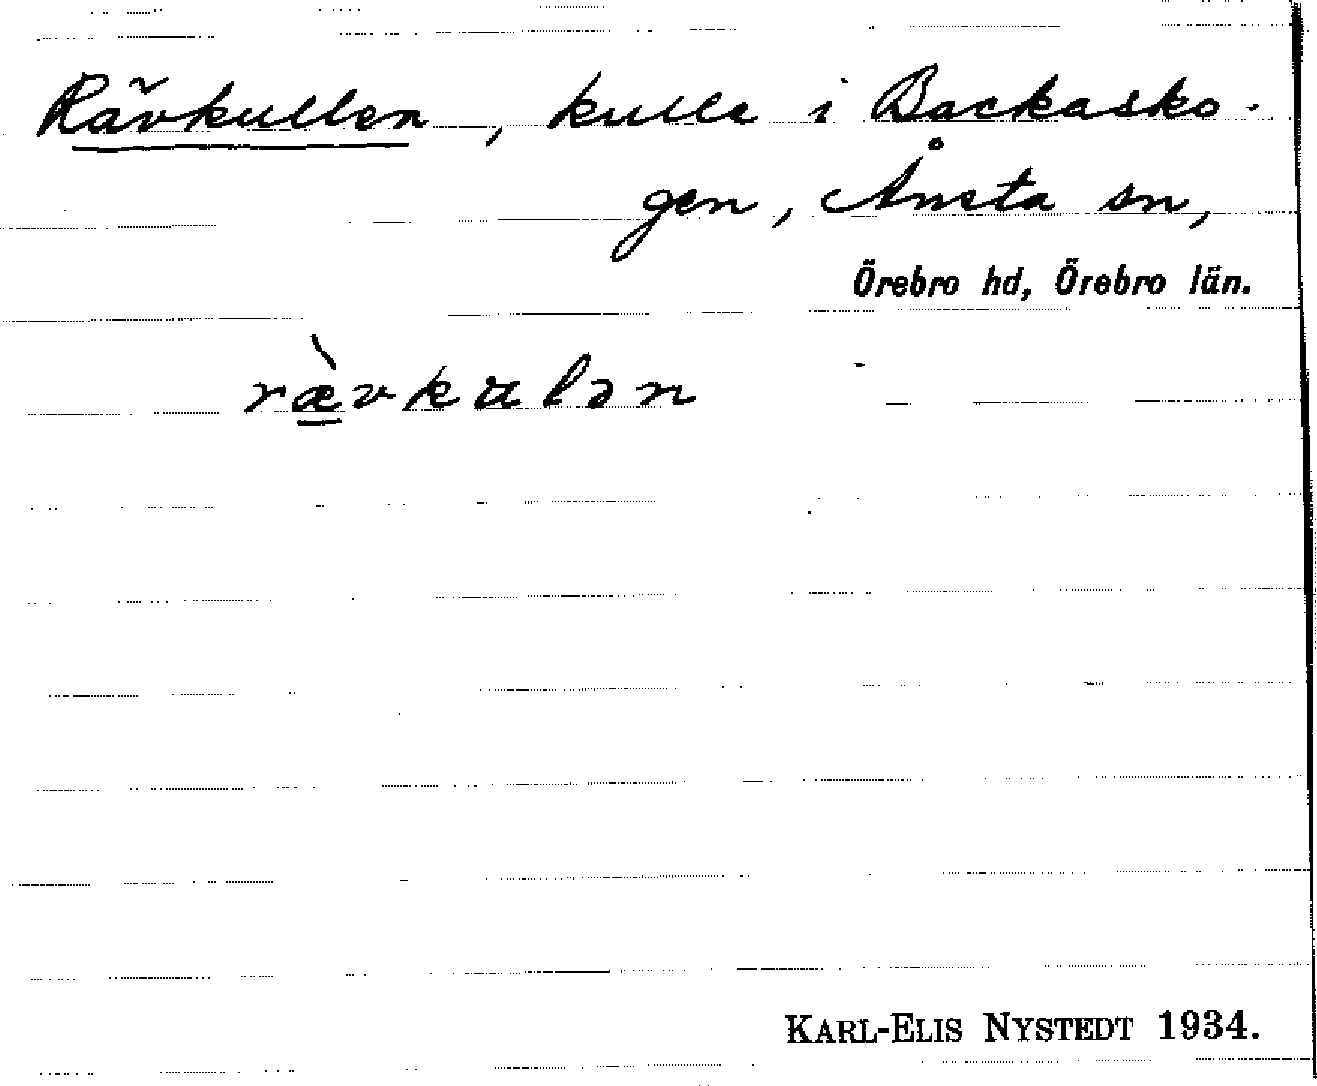 Rävkullen, kulle i Backasko-
gen, Ånsta sn,
Örebro hd, Örebro län.
ræ̀vkulən
KARL-ELIS NYSTEDT 1934.